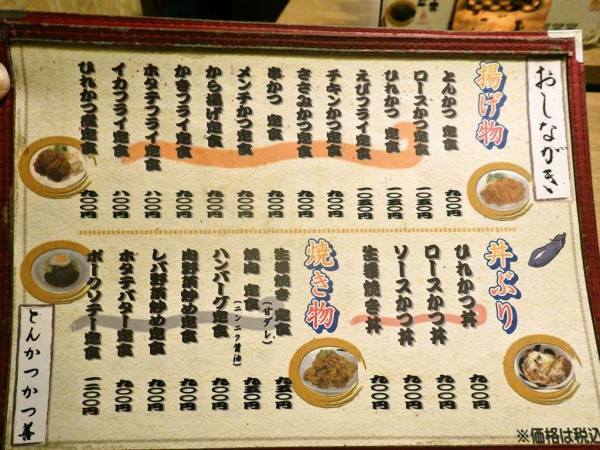 おしながき
揚げ物
とんかつ 定食 九〇〇円
ロースかつ定食 一二五〇円
ひれかつ 定食 一二五〇円
えびフライ定食 一二五〇円
チキンかつ定食 九〇〇円
ささみかつ定食 九〇〇円
串かつ 定食 九〇〇円
メンチかつ定食 九〇〇円
から揚げ定食 九〇〇円
かきフライ定食 九〇〇円
ホタテフライ定食 九〇〇円
イカフライ定食 八〇〇円
ひれかつ煮定食 九〇〇円
丼ぶり
ひれかつ丼 九〇〇円
ロースかつ丼 九〇〇円
ソースかつ丼 九〇〇円
生姜焼き丼 九〇〇円
焼き物
生姜焼き 定食 (甘ダレ)
焼肉 定食 (ニンニク醤油)
ハンバーグ定食 九〇〇円
肉野菜炒め定食 九〇〇円
レバ野菜炒め定食 九〇〇円
ホタテバター定食 九〇〇円
ポークソテー定食 一二〇〇円
とんかつかつ善
※価格は税込